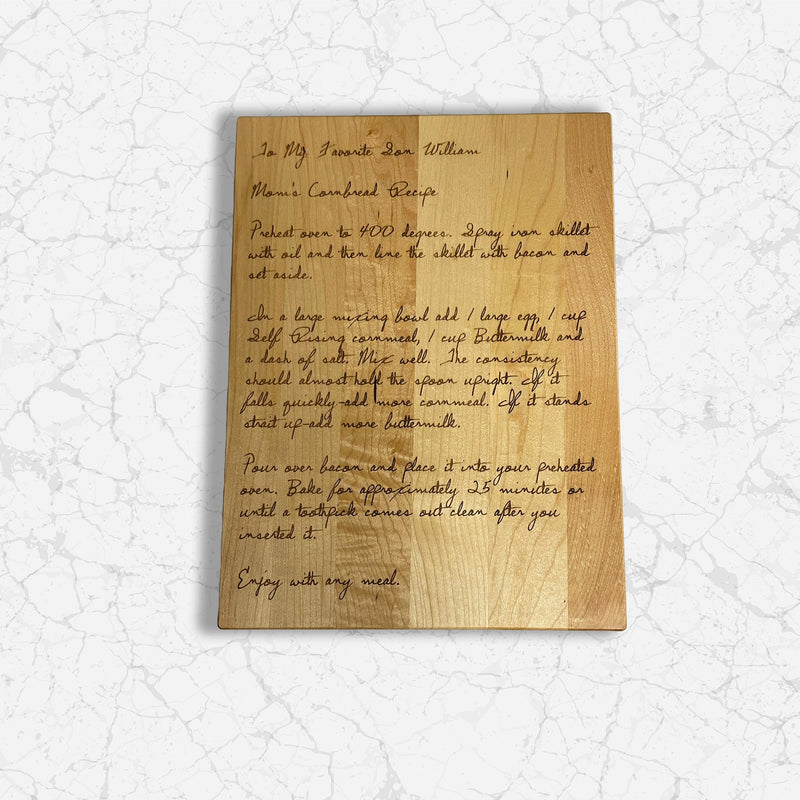 To My Favorite Son William
Mom's Cornbread Recipe
Preheat oven to 400 degrees. Spray iron skillet
with oil and then line the skillet with bacon and
set aside.
In a large mixing bowl add 1 large egg, 1 cup
Self Rising cornmeal, 1 cup Buttermilk and
a dash of salt. Mix well. The consistency
should almost hold the spoon upright. If it
falls quickly-add more cornmeal. If it stands
strait up-add more buttermilk.
Pour over bacon and place it into your preheated
oven. Bake for approximately 25 minutes or
until a toothpick comes out clean after you
inserted it.
Enjoy with any meal.